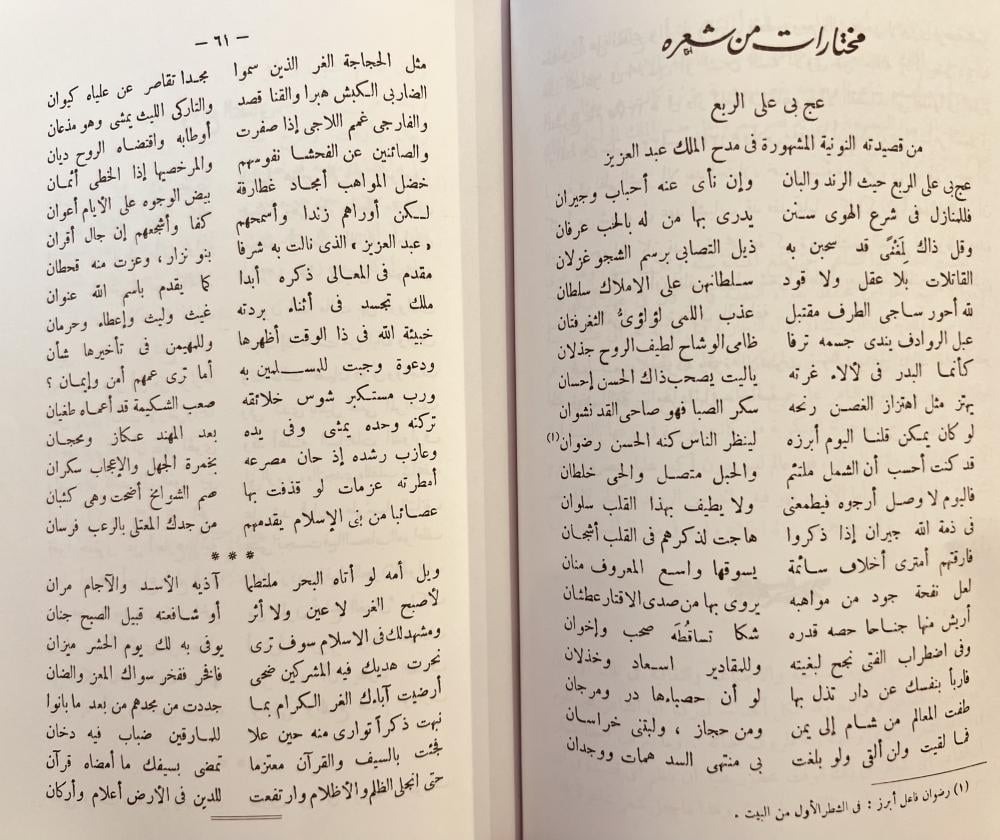 مختارات من شعره
عج بى على الربع
من قصيدته النونية المشهورة فى مدح الملك عبد العزيز
عج بى على الربع حيث الرند والبان وإن نأى عنه أحباب وجيران
فللمنازل فى شرع الهوى سنن يدرى بها من له بالحب عرفان
وقل ذاك لِمَغْنًى قد سحبن به ذيل التصابى برسم الشجو غزلان
القاتلات بلا عقل ولا قود سلطانهن على الاملاك سلطان
لله أحور ساجى الطرف مقتبل عذب اللمى لؤلؤىُّ الثغر فتان
عبل الروادف يندى جسمه ترفا ظامى الوشاح لطيف الروح جذلان
كأنما البدر فى لألاء غرته ياليت يصحب ذاك الحسن إحسان
يهتز مثل اهتزاز الغصن رنحه سكر الصبا فهو صاحى القد نشوان
لو كان يمكن قلنا اليوم أبرزه لينظر الناس كنه الحسن رضوان (١)
قد كنت أحسب أن الشمل ملتئم والحبل متصل والحى خلطان
فاليوم لا وصل أرجوه فيطمعنى ولا يطيف بهذا القلب سلوان
فى ذمة الله جيران إذا ذكروا هاجت لذكرهم فى القلب أشجان
فارقتهم أمترى أخلاف سائمة يسوقها واسع المعروف منان
لعل نفحة جود من مواهبه يروى بها من صدى الاقتار عطشان
أريش منها جناحا حصه قدره شكا تساقُطَه صحب وإخوان
وفى اضطراب الفتى نجح لبغيته وللمقادير اسعاد وخذلان
فاربأ بنفسك عن دار تذل بها لو أن حصباءها در ومرجان
طفت المعالم من شام إلى يمن ومن حجاز ، ولبتنى خراسان
فما لقيت ولن ألقى ولو بلغت بى منتهى السد همات ووجدان
(١) رضوان فاعل أبرز : فى الشطر الأول من البيت .
— ٦١ —
مثل الحجاجة الغر الذين سموا مجدا تقاصر عن علياه كيوان
الضاربى الكبش هبرا والقنا قصد والتاركى الليث يمشى وهو مذعان
والفارجى غمم اللاجى إذا صفرت أوطابه واقتضاه الروح ديان
والصائنين عن الفحشا نفوسهم والمرخصيها إذا الخطى أثمان
خضل المواهب أمجاد غطارفة بيض الوجوه على الأيام أعوان
لكن أوراهم زندا وأسمحهم كفا وأشجعهم إن جال أقران
«عبد العزيز» الذى نالت به شرفا بنو نزار ، وعزت منه قحطان
مقدم فى المعالى ذكره أبدا كما يقدم باسم الله عنوان
ملك تجسد فى أثناء بردته غيث وليث وإعطاء وحرمان
خبيئة الله فى ذا الوقت أظهرها وللمهيمن فى تأخيرها شأن
ودعوة وجبت للمسلمين به أما ترى عمهم أمن وإيمان ؟
ورب مستكبر شوس خلائقه صعب الشكيمة قد أعماه طغيان
تركته وحده يمشى وفى يده بعد المهند عكاز ومحجان
وعازب رشده إذ حان مصرعه بخمرة الجهل والإعجاب سكران
أمطرته عزمات لو قذفت بها صم الشوامخ أضحت وهى كثبان
عصائبا من بنى الإسلام يقدمهم من جدك المعتلى بالرعب فرسان
* * *
ويل أمه لو أتاه البحر ملتطما آذيه الأسد والآجام مران
لأصبح الغر لا عين ولا أثر أو شافعته قبيل الصبح جنان
ومشهد لك فى الاسلام سوف ترى يوفى به لك يوم الحشر ميزان
نحرت هديك فيه المشركين ضحى فافخر ففخر سواك المعز والضان
أرضيت آباءك الغر الكرام بما جددت من مجدهم من بعد ما بانوا
نبهت ذكراً توارى منه حين علا للمارقين ضباب فيه دخان
فجئت بالسيف والقرآن معتزما تمضى بسيفك ما أمضاه قرآن
حتى انجلى الظلم والاظلام وارتفعت للدين فى الأرض أعلام وأركان